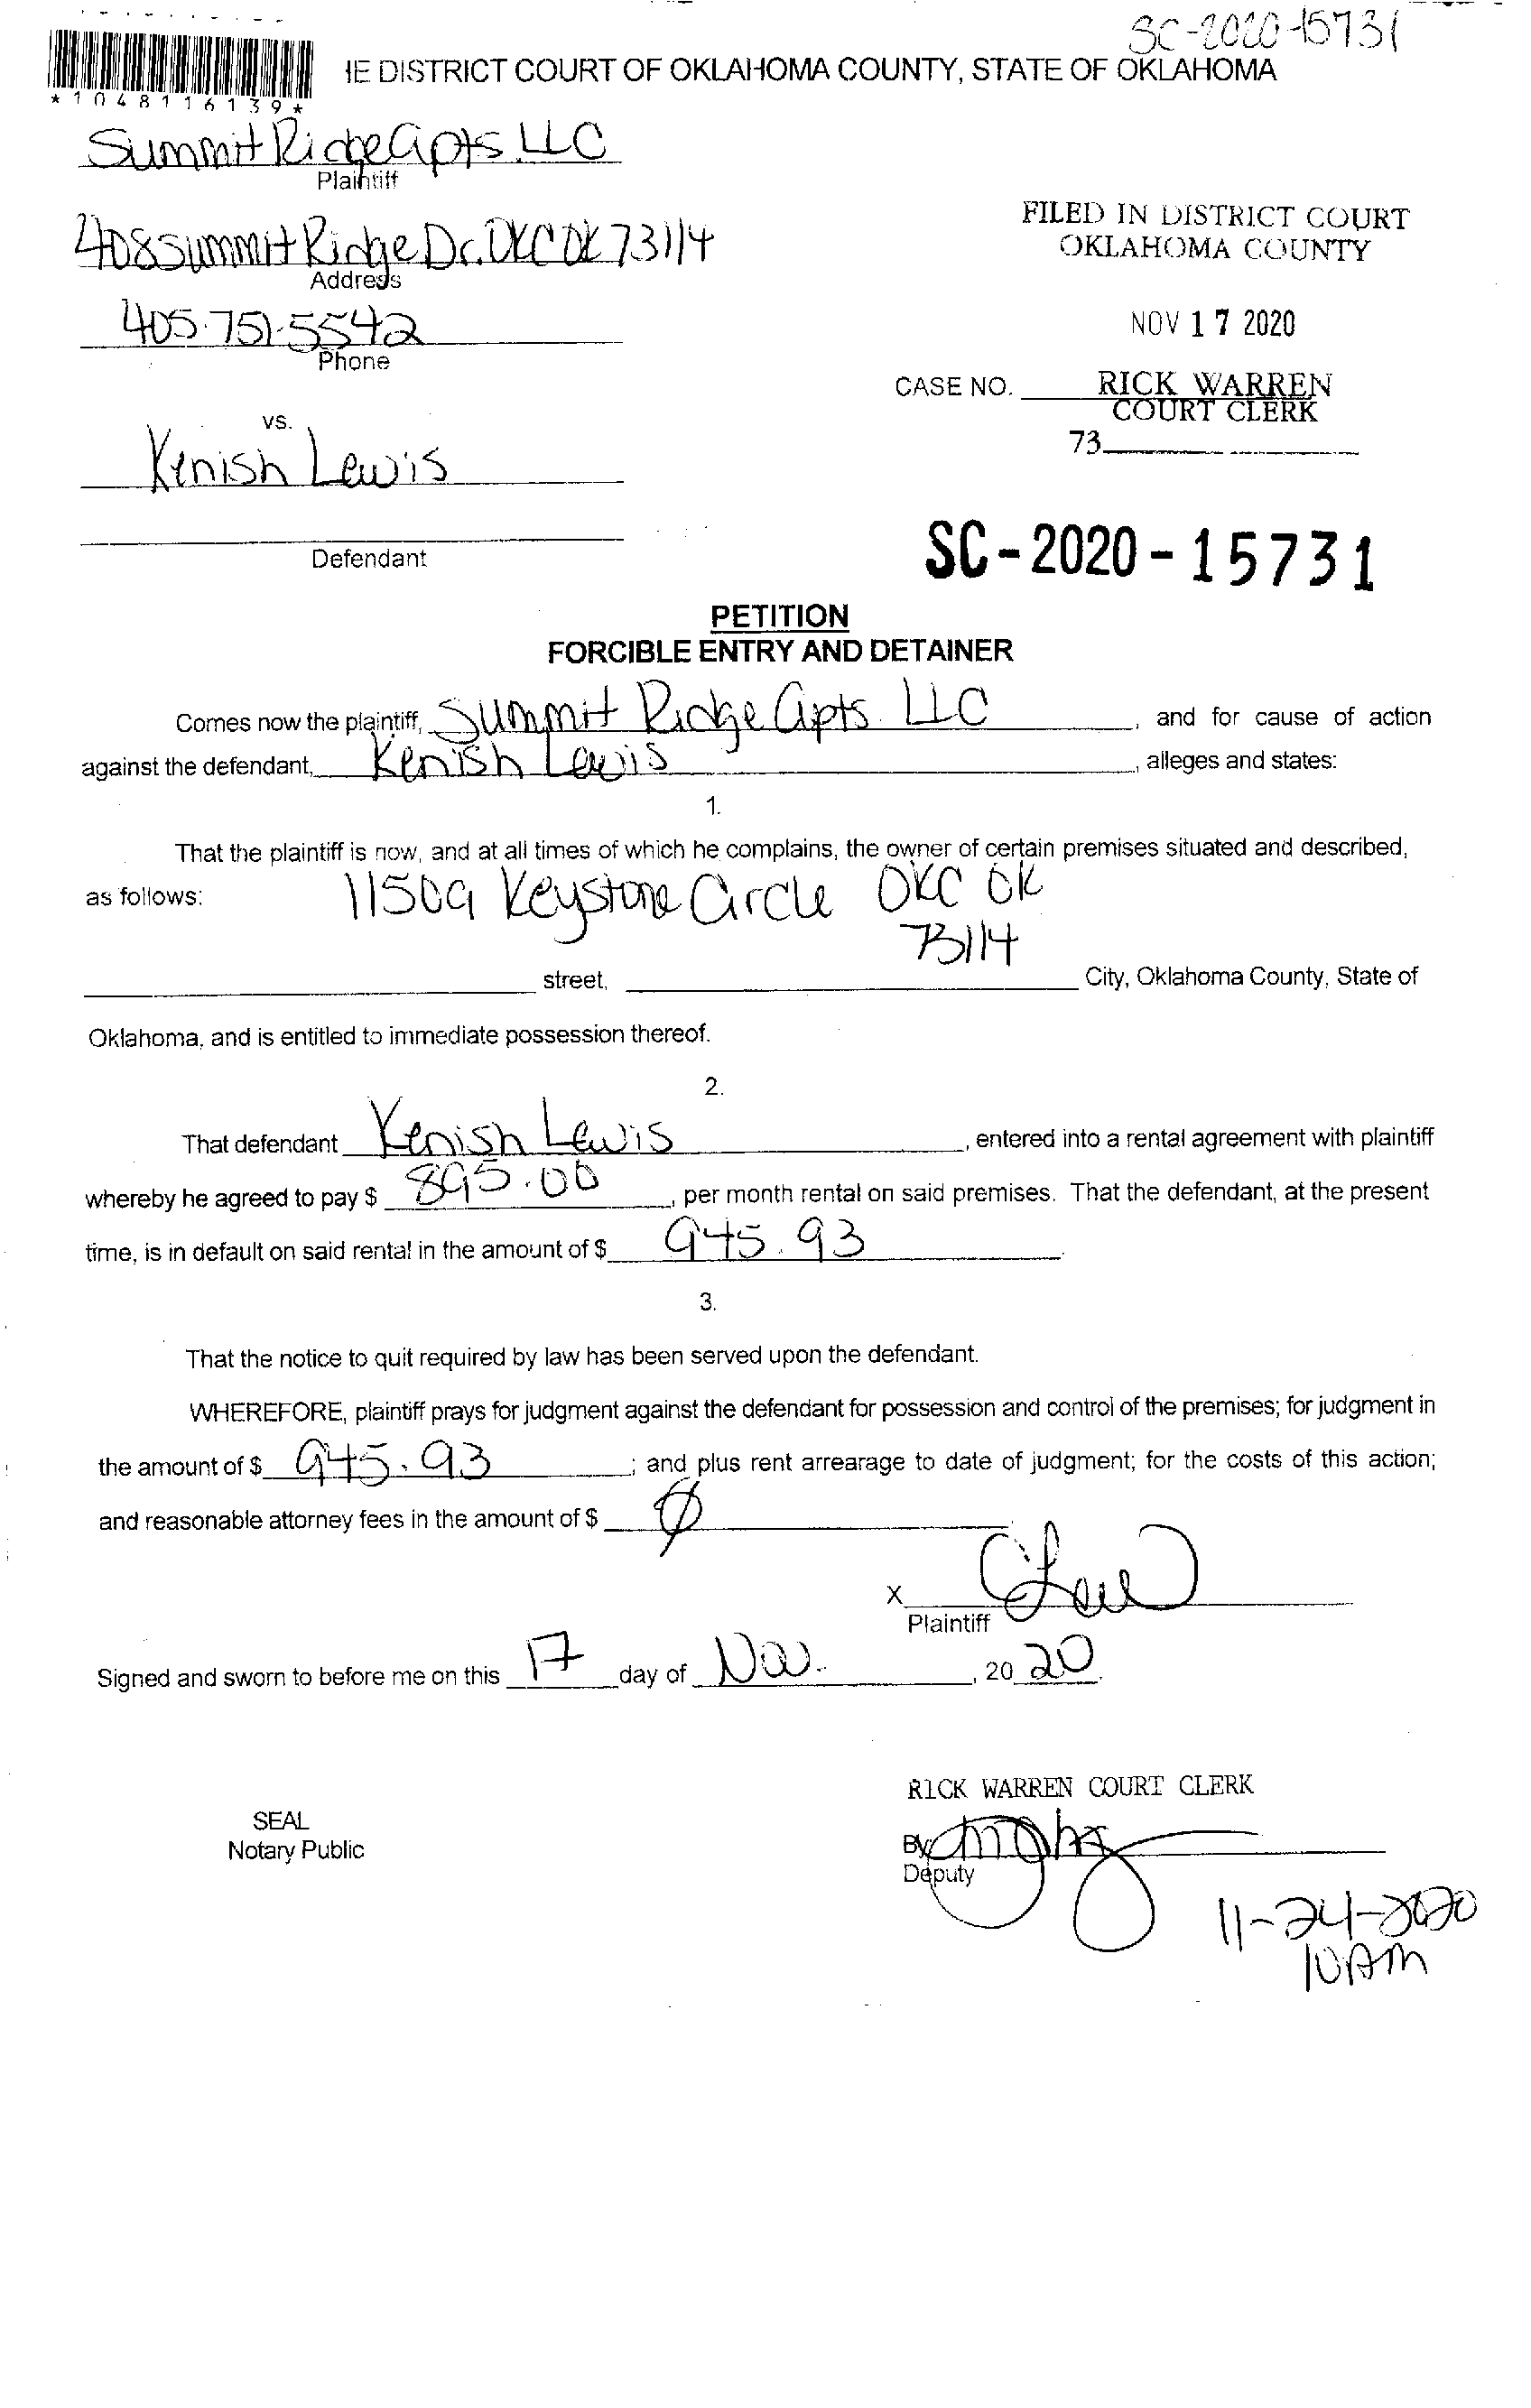 SC-2020-15731
IE DISTRICT COURT OF OKLAHOMA COUNTY, STATE OF OKLAHOMA
*1048116139*
Summit Ridge Apts LLC
Plaintiff
408 Summit Ridge Dr. OKC OK 73114
Address
405.751.5542
Phone
FILED IN DISTRICT COURT
OKLAHOMA COUNTY
NOV 17 2020
CASE NO. RICK WARREN
COURT CLERK
73
vs.
Kenish Lewis
Defendant
SC-2020-15731
PETITION
FORCIBLE ENTRY AND DETAINER
Comes now the plaintiff, Summit Ridge Apts. LLC, and for cause of action
against the defendant, Kenish Lewis, alleges and states:
1.
That the plaintiff is now, and at all times of which he complains, the owner of certain premises situated and described,
as follows: 11509 Keystone Circle OKC OK
73114
street, City, Oklahoma County, State of
Oklahoma, and is entitled to immediate possession thereof.
2.
That defendant Kenish Lewis, entered into a rental agreement with plaintiff
whereby he agreed to pay $ 895.00, per month rental on said premises. That the defendant, at the present
time, is in default on said rental in the amount of $ 945.93.
3.
That the notice to quit required by law has been served upon the defendant.
WHEREFORE, plaintiff prays for judgment against the defendant for possession and control of the premises; for judgment in
the amount of $ 945.93; and plus rent arrearage to date of judgment; for the costs of this action;
and reasonable attorney fees in the amount of $ Ø
X
Plaintiff
Signed and sworn to before me on this 17 day of Nov., 20 20.
RICK WARREN COURT CLERK
SEAL
Notary Public
By
Deputy
11-24-2020
10AM